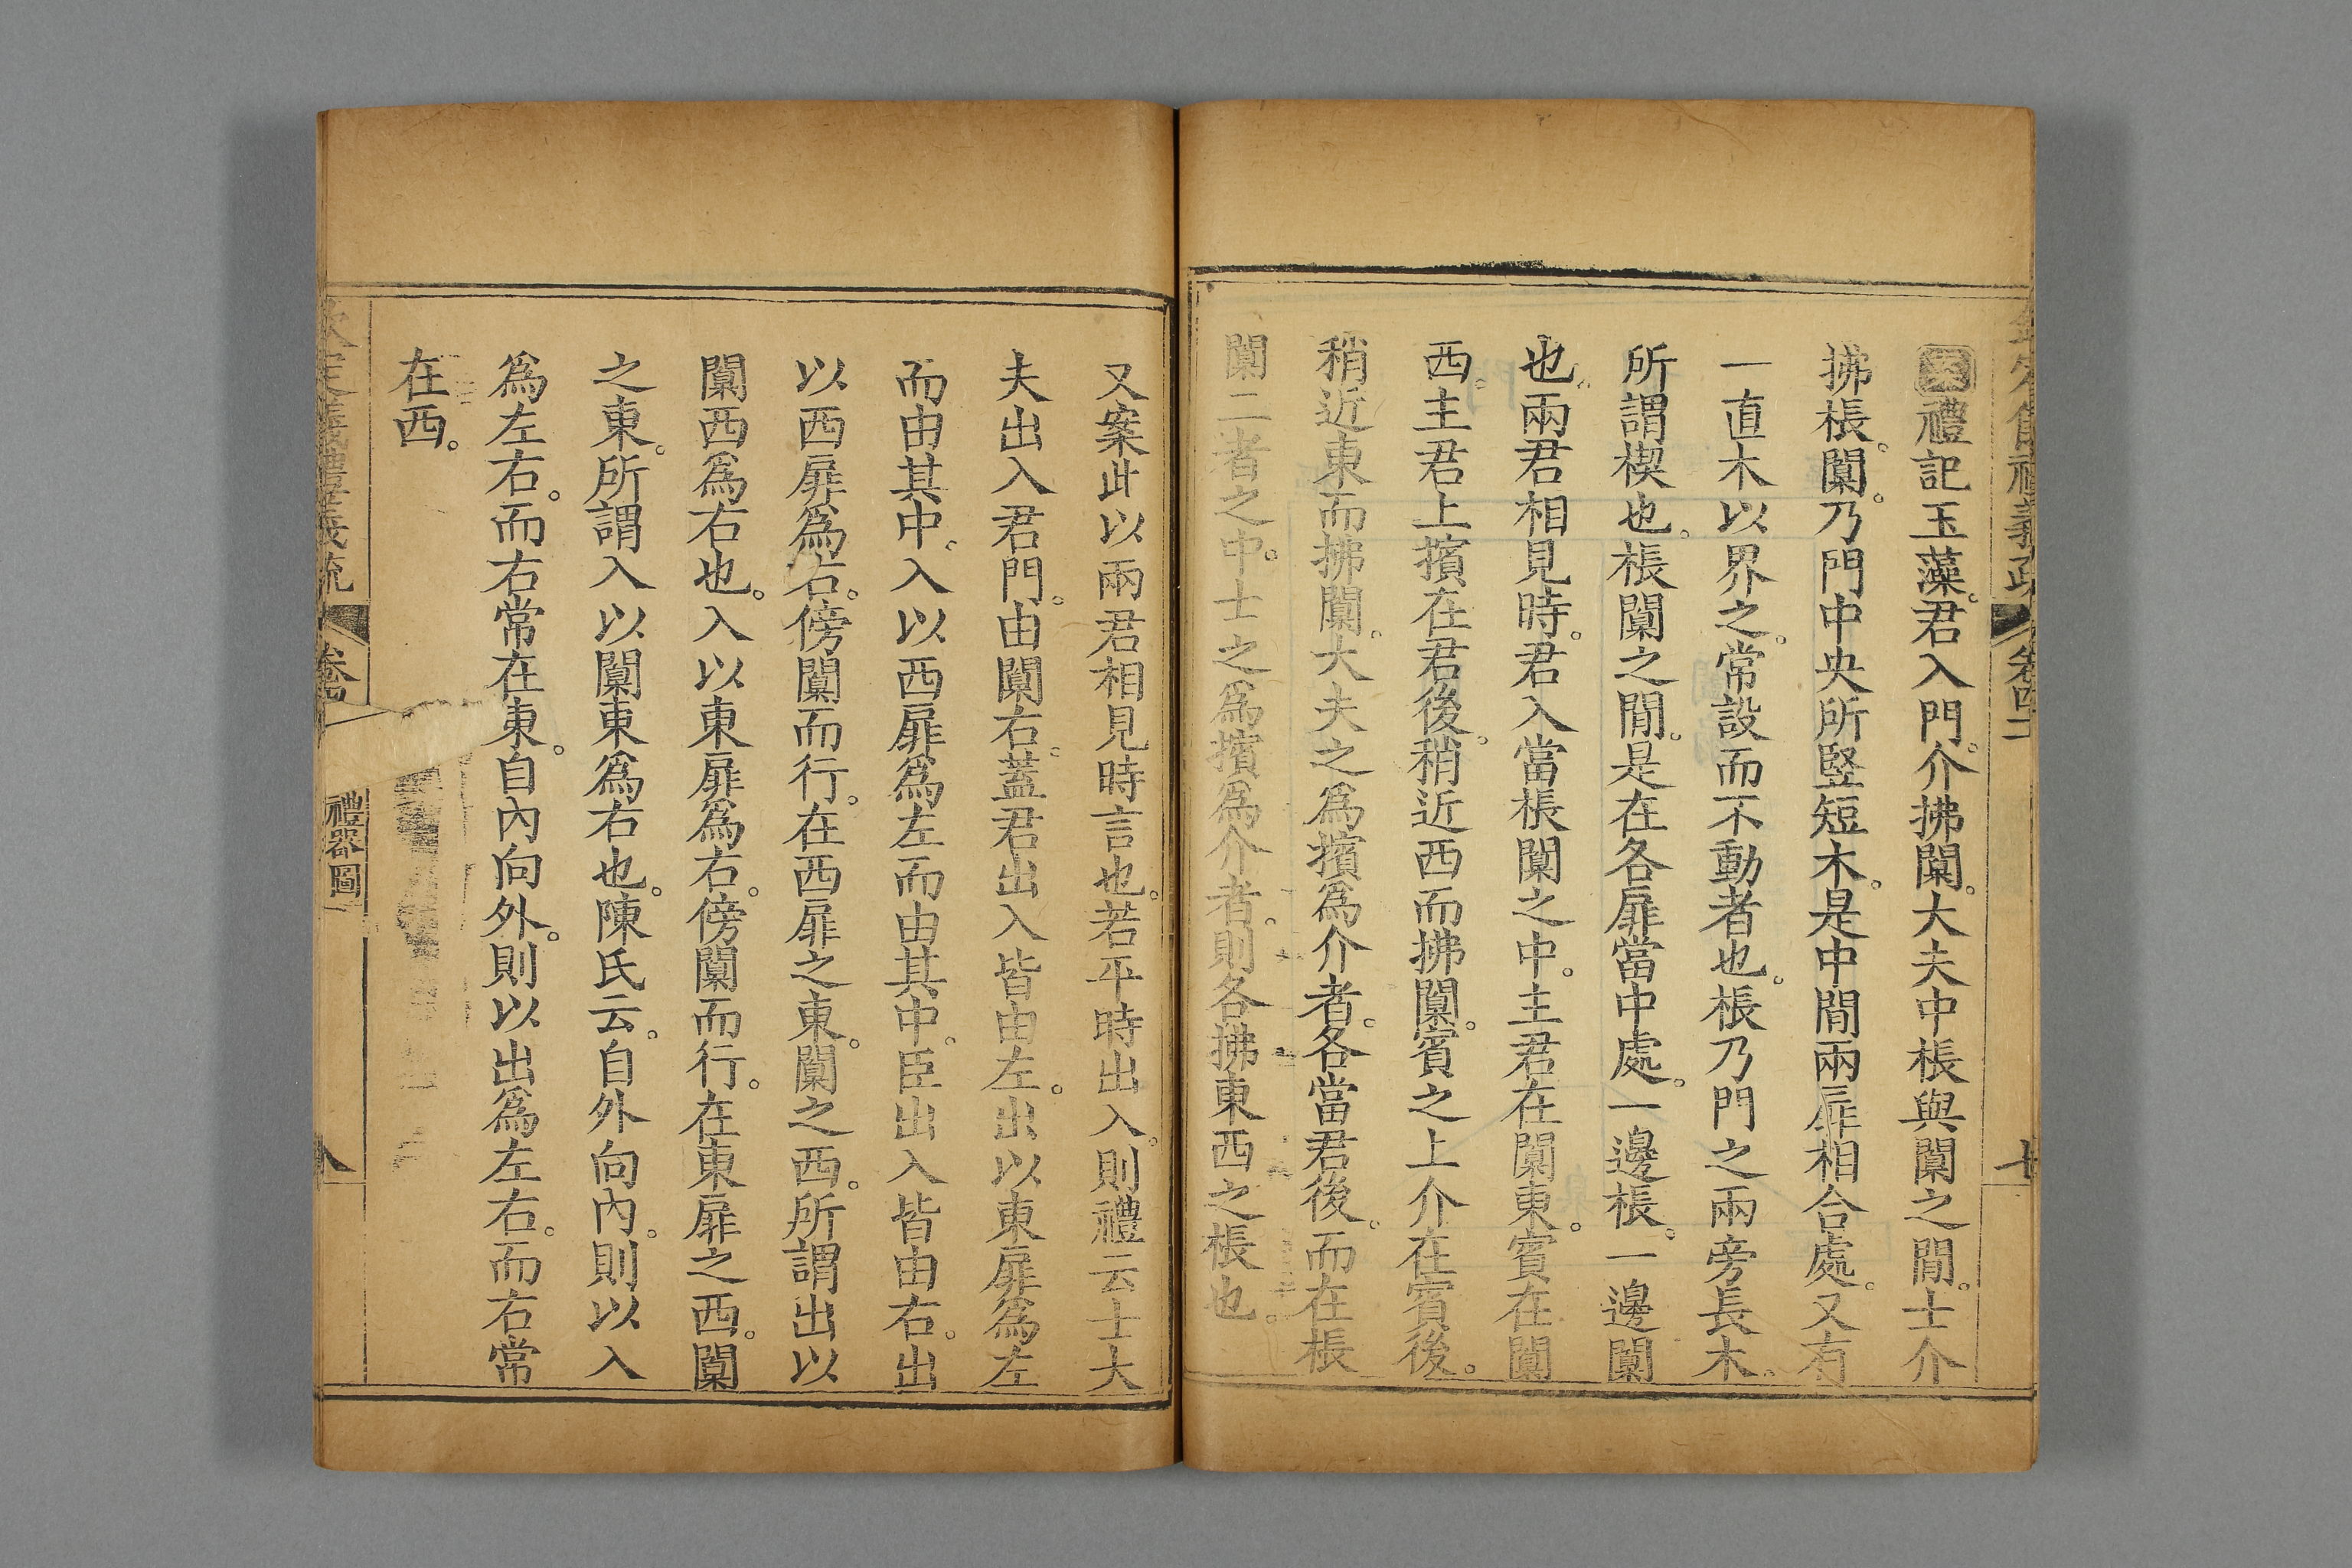 禮記玉藻。君入門。介拂闑。大夫中棖與闑之閒。士介
拂棖。闑。乃門中央所豎短木。是中閒兩扉相合處。又有
一直木以界之。常設而不動者也。棖乃門之兩旁長木。
所謂楔也。棖闑之閒。是在各扉當中處。一邊棖。一邊闑
也。兩君相見時。君入當棖闑之中。主君在闑東。賓在闑
西。主君上擯在君後。稍近西而拂闑。賓之上介在賓後。
稍近東而拂闑。大夫之爲擯爲介者。各當君後。而在棖
闑二者之中。士之爲擯爲介者。則各拂東西之棖也。
又案此以兩君相見時言也。若平時出入。則禮云士大
夫出入君門。由闑右。蓋君出入皆由左。出以東扉爲左
而由其中。入以西扉爲左而由其中。臣出入皆由右。出
以西扉爲右。傍闑而行。在西扉之東。闑之西。所謂出以
闑西爲右也。入以東扉爲右。傍闑而行。在東扉之西。闑
之東。所謂入以闑東爲右也。陳氏云。自外向內。則以入
爲左右。而右常在東。自內向外。則以出爲左右。而右常
在西。
禮器圖